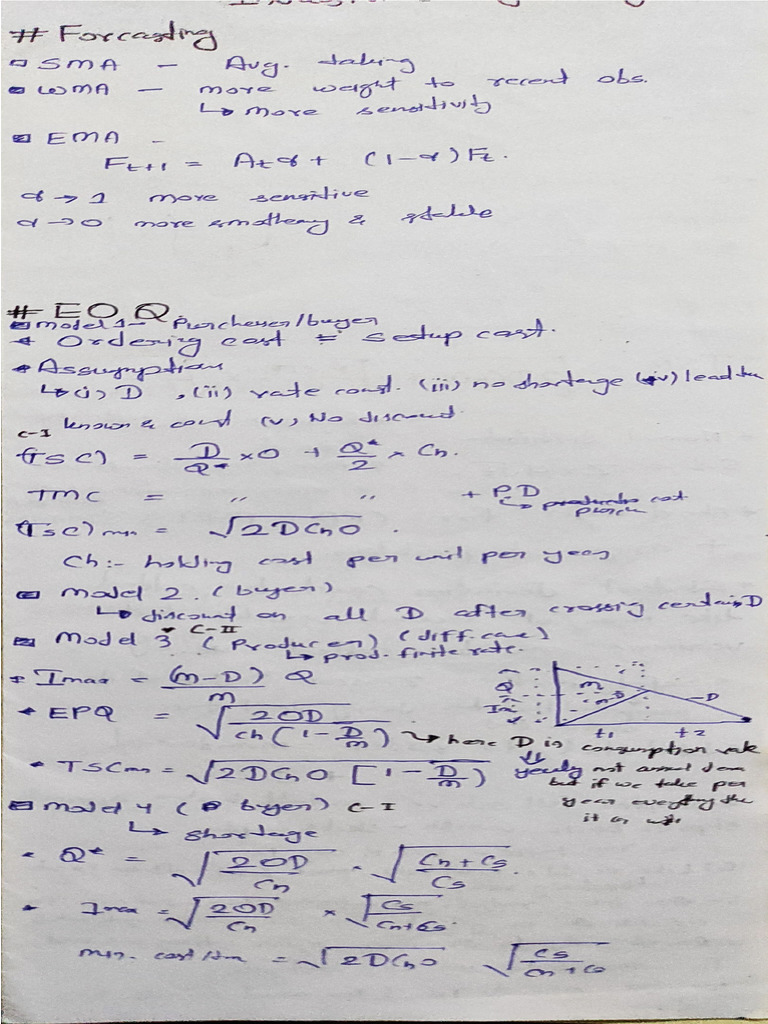 # Forcasting
SMA – Avg. taking
WMA – more weight to recent obs.
↳ more sensitivity
EMA –
Ft+1 = At α + (1-α) Ft.
α → 1 more sensitive
α → 0 more smotheny & stable
# EOQ
model 1 – Purcheser/buyer
* Ordering cost = setup cost.
* Assumption
↳ (i) D , (ii) rate const. (iii) no shortage (iv) lead
known & const (v) No discount
C-I
(TSC) = D/Q* × O + Q*/2 × Ch.
TMC = ,, ,, + P.D
(TSC)min = √2DChO .
Ch :- holding cost per unit per year
model 2. (buyer)
↳ discount on all D after crossing certain D
C-II
model 3 (Producer) (diff. case)
↳ prod. finite rate.
* Imax = (m-D)/m Q
Q Im m m-D -D t1 t2
* EPQ = √2OD/Ch(1-D/m) → here D is consumption rate
yearly not annual dem
but if we take per
year everything the
it is
* TSCmn = √2DChO [1-D/m)
model 4 (buyer) C-I
↳ shortage
Q* = √2OD/Ch · √Ch+Cs/Cs.
Imax = √2OD/Ch × √Cs/Ch+Cs.
min. cost = √2DChO √Cs/Ch+Cs